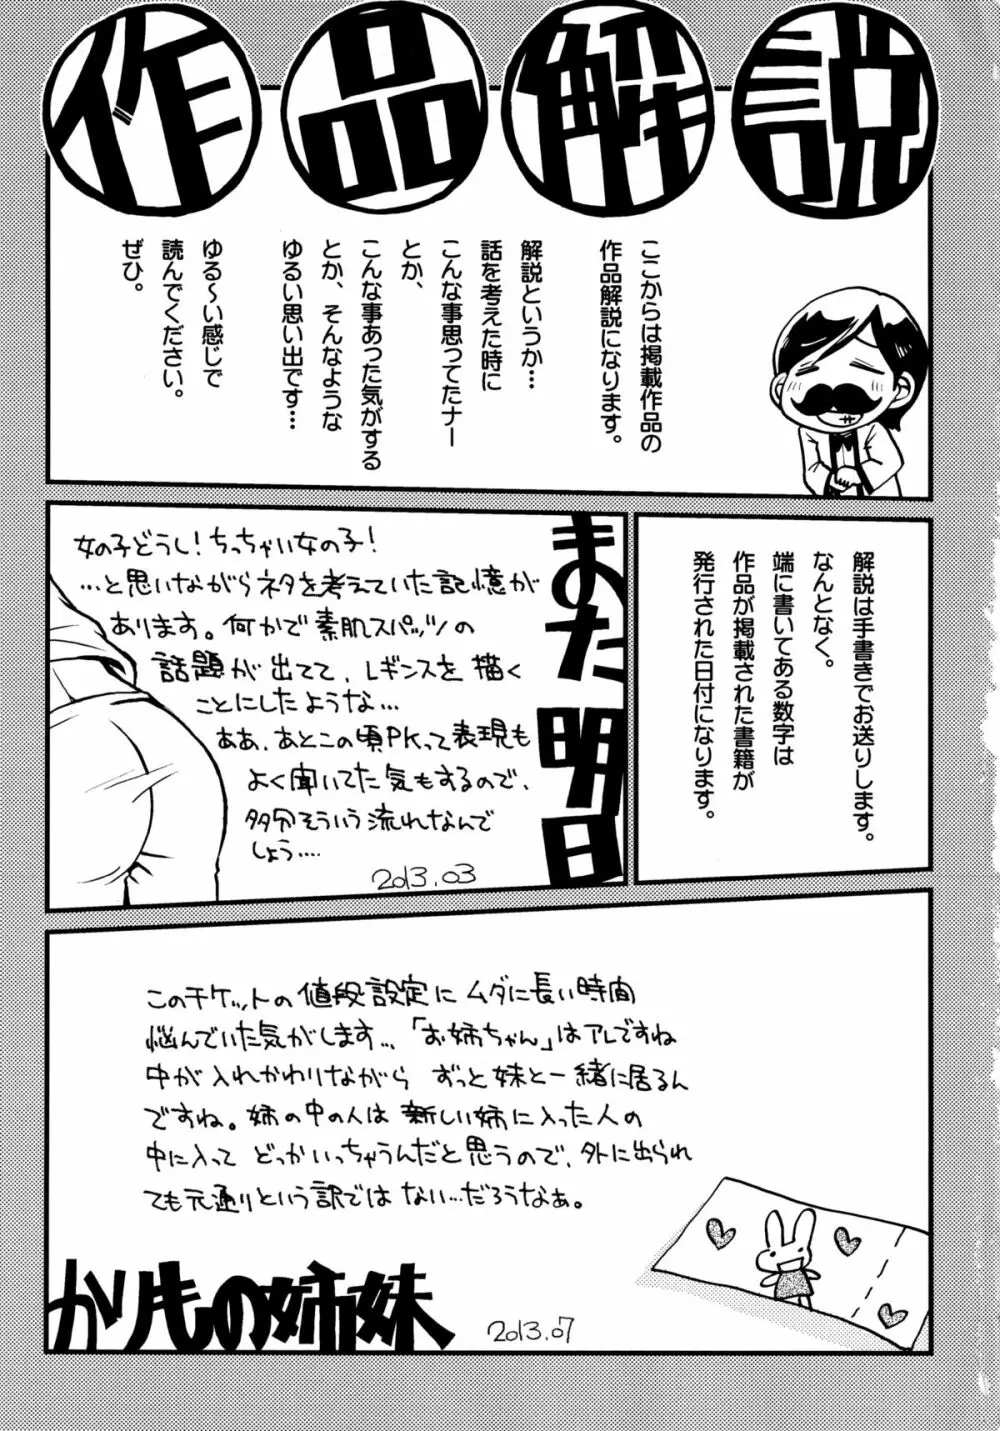 作品解説
ここからは掲載作品の
作品解説になります。
解説というか…
話を考えた時に
こんな事思ってたナー
とか、
こんな事あった気がする
とか、そんなような
ゆるい思い出です…
ゆる～い感じで
読んでください。
ぜひ。
解説は手書きでお送りします。
なんとなく。
端に書いてある数字は
作品が掲載された書籍が
発行された日付になります。
また明日
女の子どうし！ちっちゃい女の子！
…と思いながらネタを考えていた記憶が
あります。何かで素肌スパッツの
話題が出てて、レギンスを描く
ことにしたような…
ああ、あとこの頃PKって表現も
よく聞いてた気もするので、
多分そういう流れなんで
しょう….
2013.03
このチケットの値段設定にムダに長い時間
悩んでいた気がします…、「お姉ちゃん」はアレですね
中が入れかわりながら ずっと妹と一緒に居るん
ですね。姉の中の人は新しい姉に入った人の
中に入って どっかいっちゃうんだと思うので、外に出られ
ても元通りという訳では ない…だろうなぁ。
かりもの姉妹
2013.07